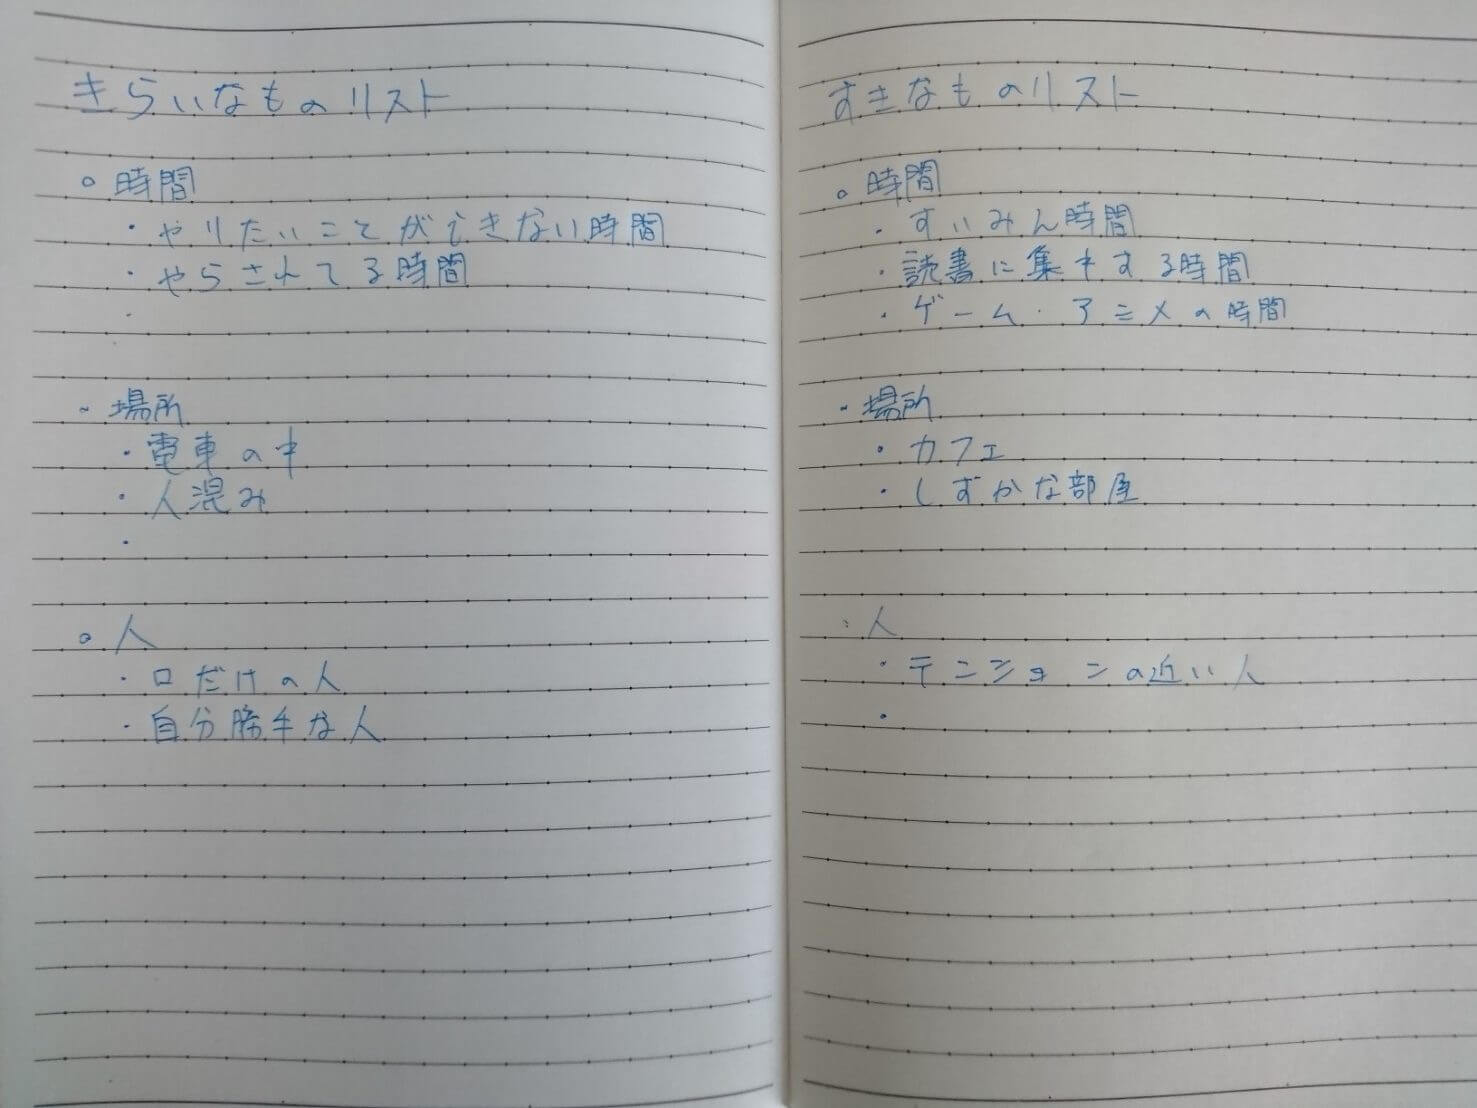 きらいなものリスト
○ 時間
・やりたいことができない時間
・やらされてる時間
・
・場所
・電車の中
・人混み
・
○ 人
・口だけの人
・自分勝手な人
すきなものリスト
○ 時間
・すいみん時間
・読書に集中する時間
・ゲーム・アニメの時間
・場所
・カフェ
・しずかな部屋
・人
・テンションの近い人
・